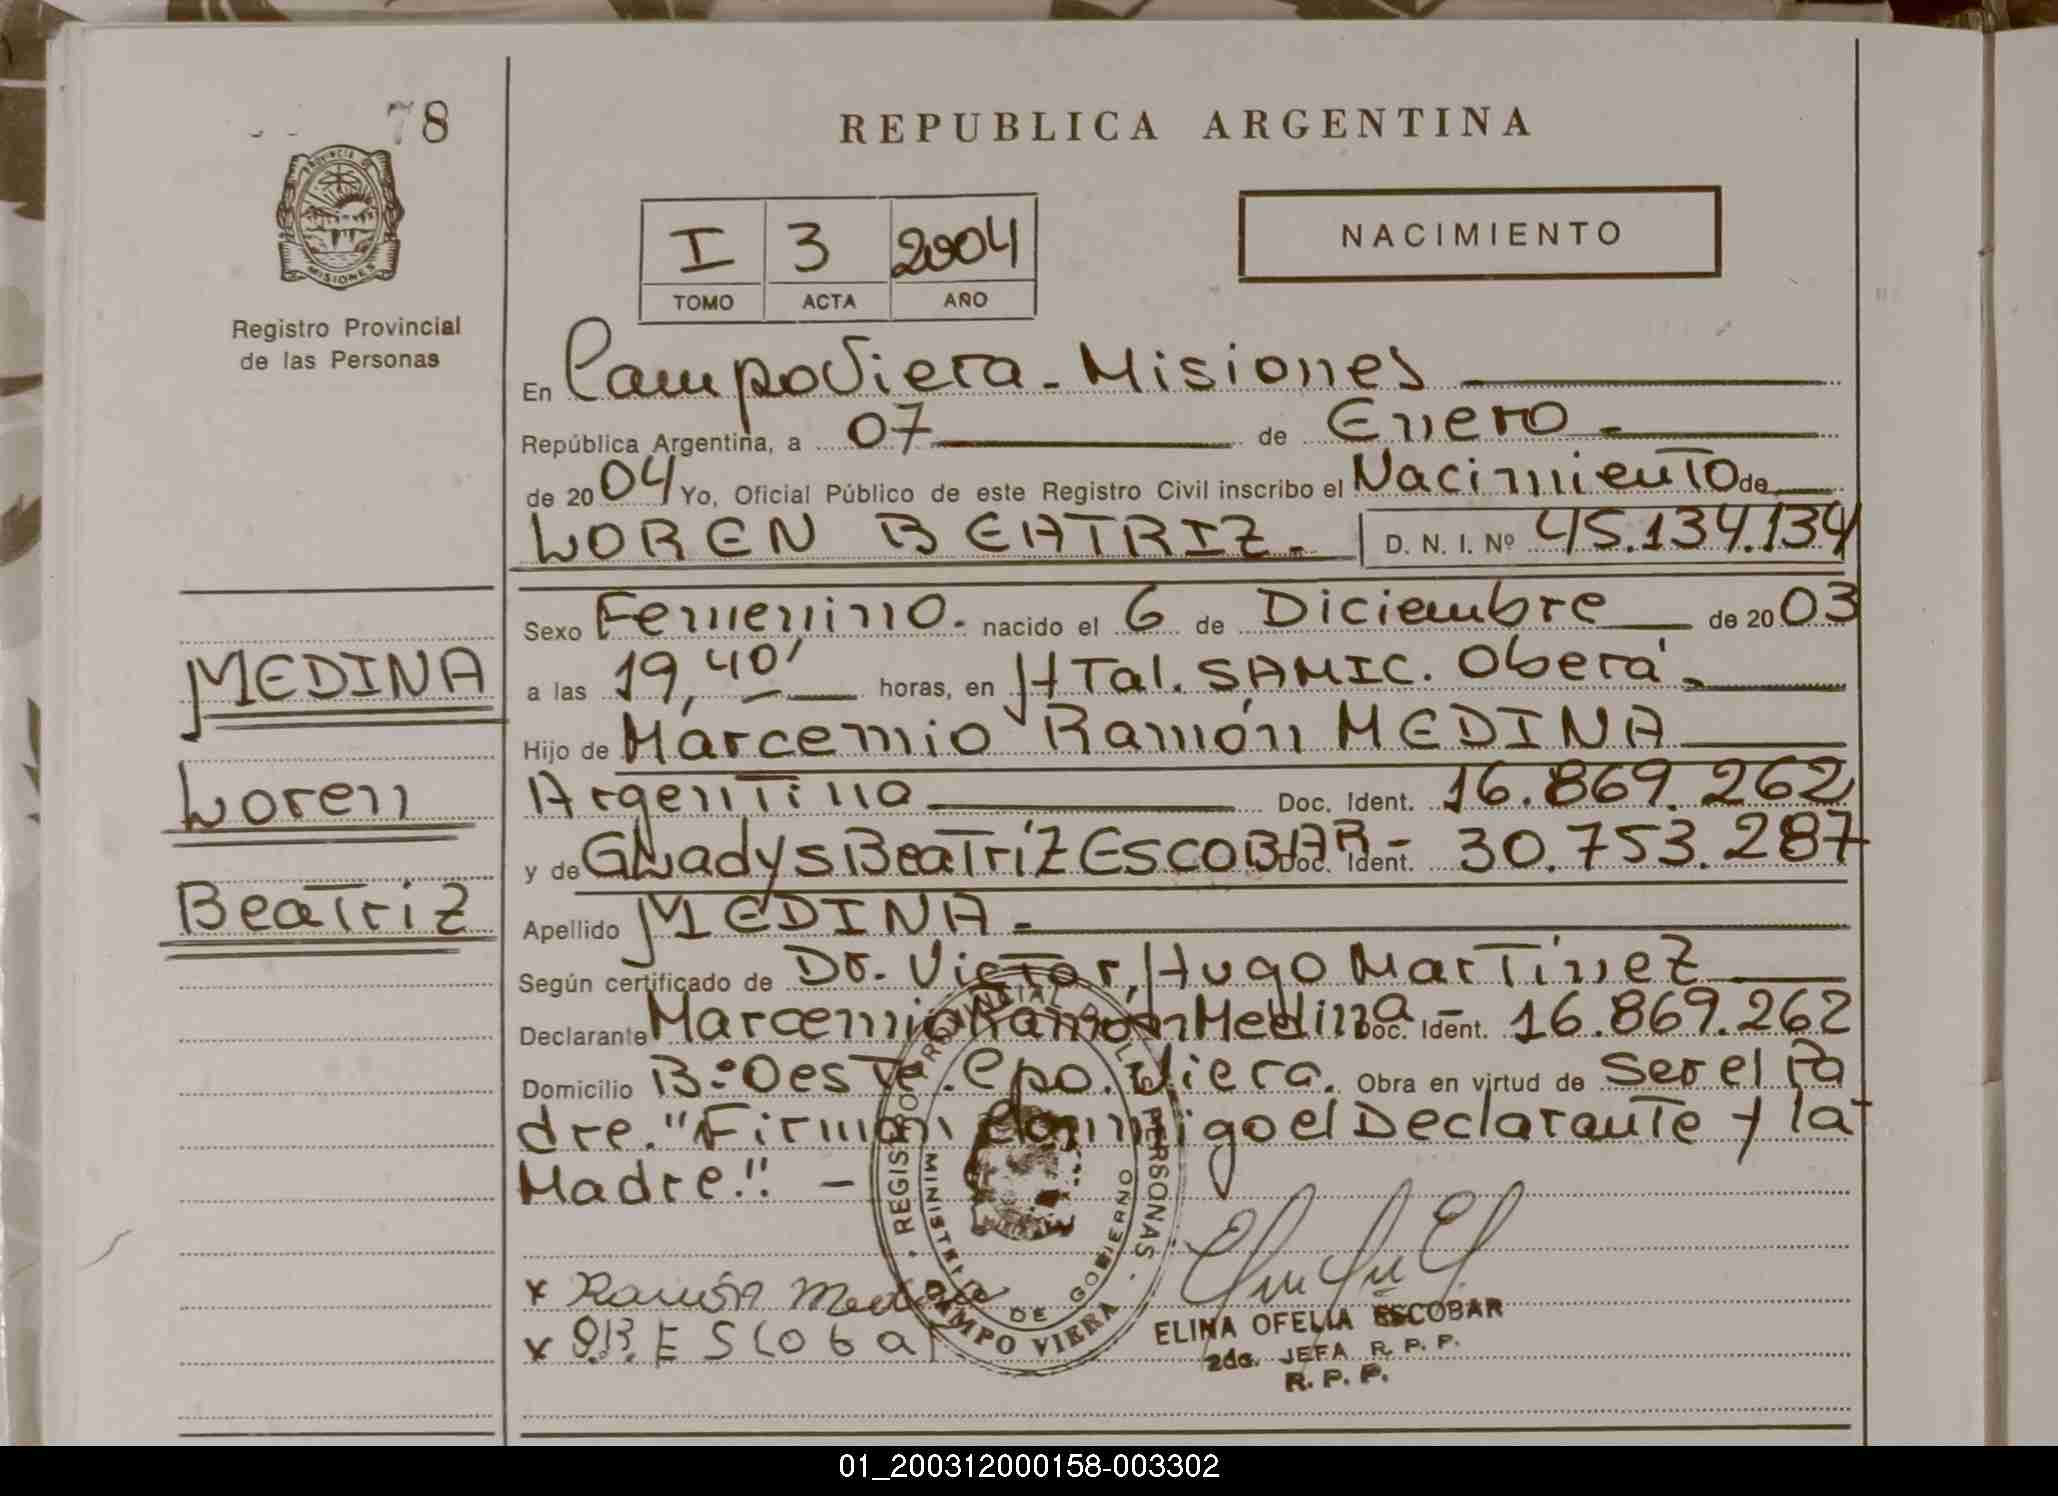 78
REPUBLICA ARGENTINA
PROVINCIA DE
MISIONES
Registro Provincial
de las Personas
I 3 2004
TOMO ACTA AÑO
NACIMIENTO
En Campo Viera - Misiones
República Argentina, a 07 de Enero -
de 2004 Yo, Oficial Público de este Registro Civil inscribo el Nacimiento de
LOREN BEATRIZ. D. N. I. Nº 45.134.134
Sexo Femenino. nacido el 6 de Diciembre de 2003
MEDINA
a las 19,40' horas, en HTal. SAMIC. Oberá -
Hijo de Marcemio Ramón MEDINA
Loren
Argentina Doc. Ident. 16.869.262
y de GLadys BeaTríZ ESCOBAR - Doc. Ident. 30.753.287
Beatriz
Apellido MEDINA -
Según certificado de Dr. Victor Hugo MarTínez
Declarante Marcemio Ramón Medina - Doc. Ident. 16.869.262
Domicilio B.º Oeste. Cpo. Viera. Obra en virtud de Ser el Pa
dre. "Firman conmigo el Declarante y la
Madre". -
REGISTRO PROVINCIAL DE LAS PERSONAS
MINISTERIO DE GOBIERNO
CAMPO VIERA
x Ramón Medina
x G.B. Escobar
ELINA OFELIA ESCOBAR
2da. JEFA R. P. P.
R. P. P.
01_200312000158-003302